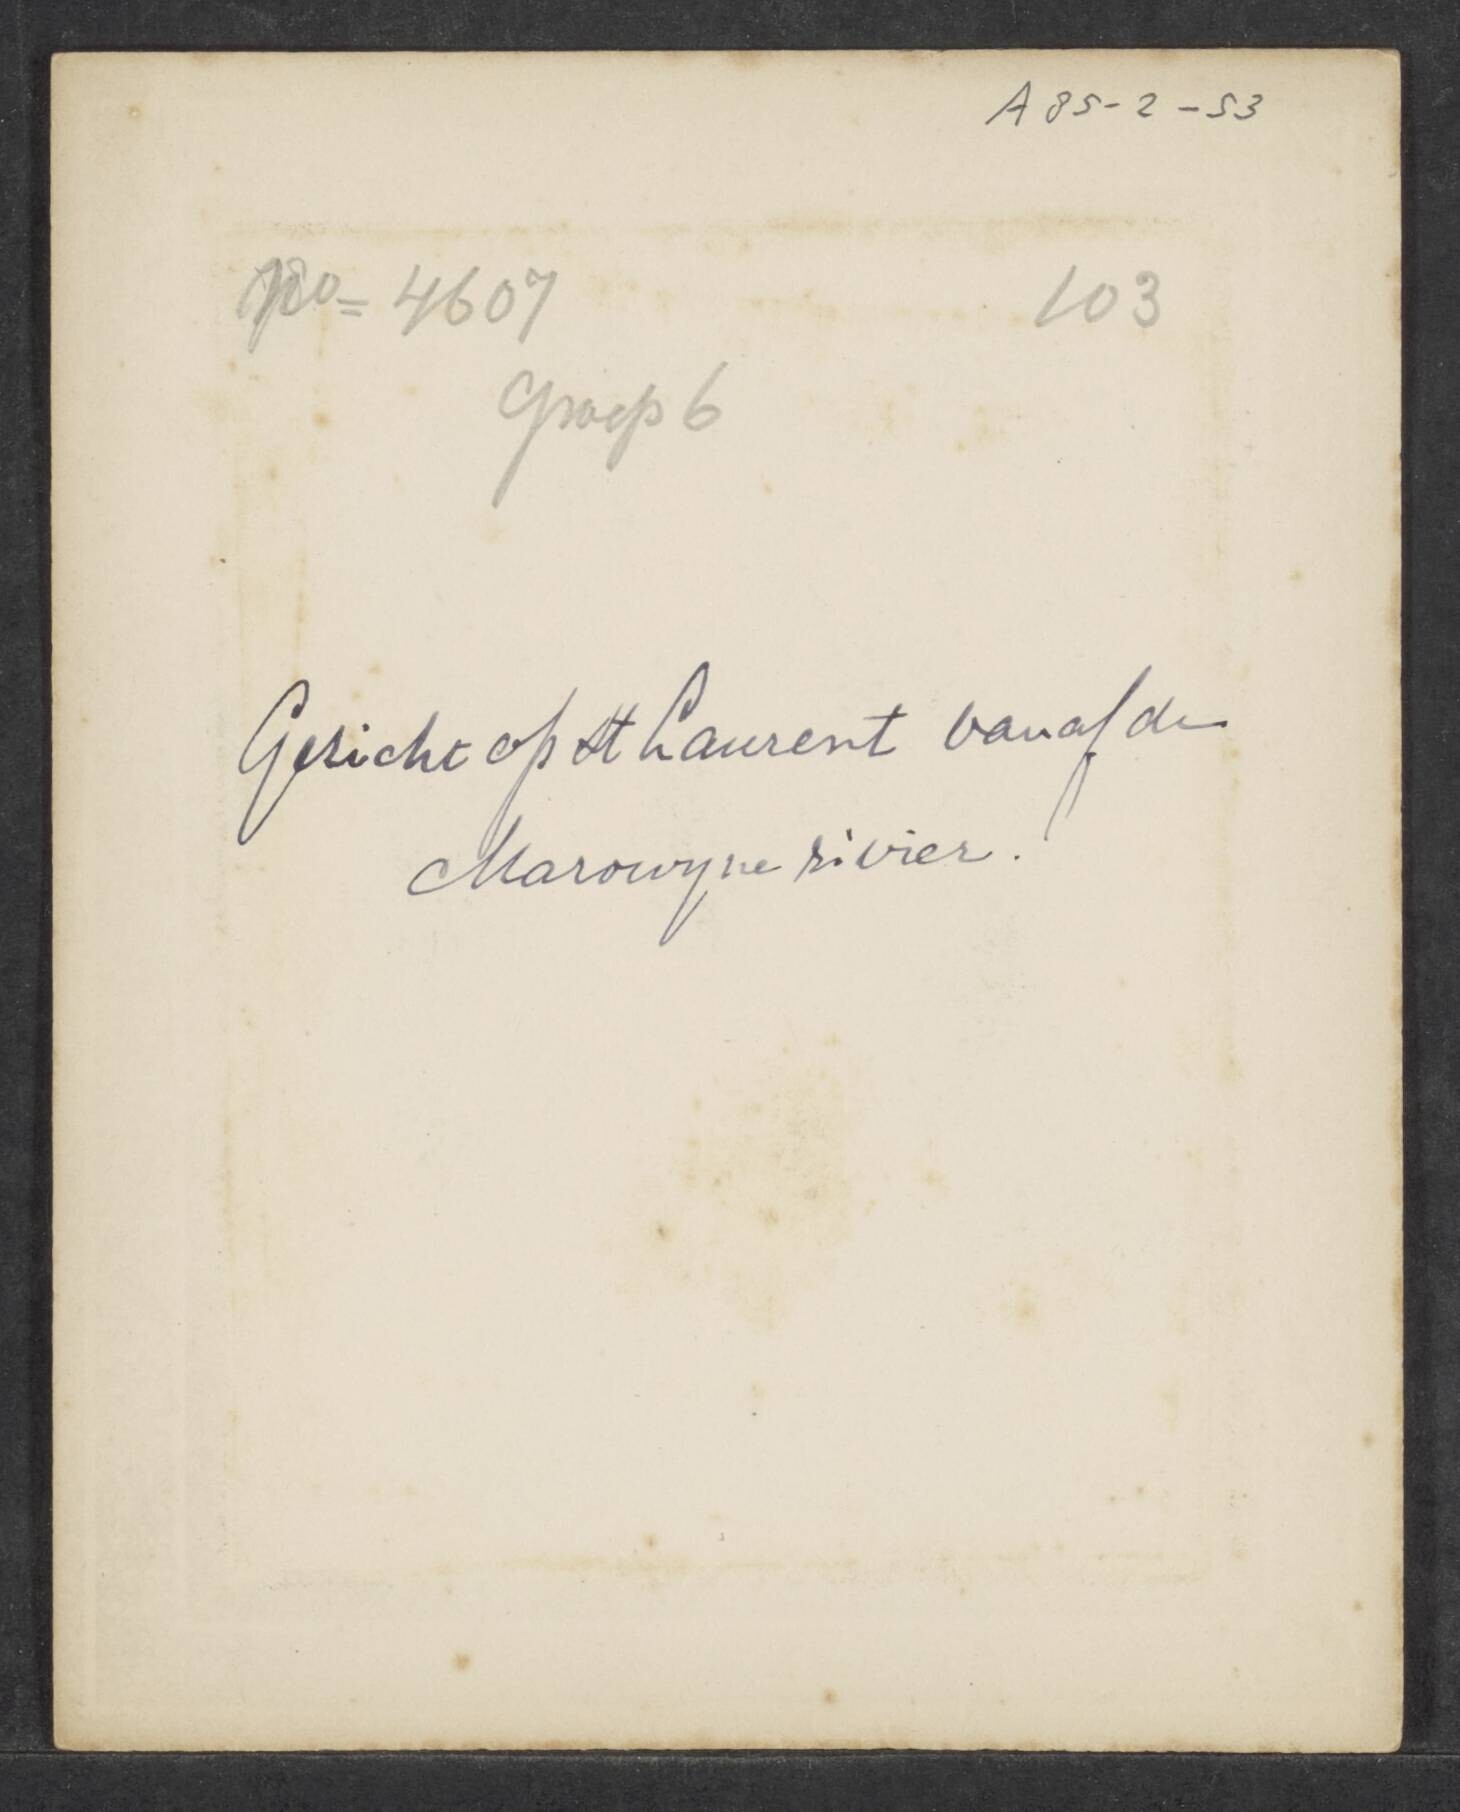 A 85-2-53
No= 4607 103
Groep 6
Gezicht op St Laurent vanaf de
Marowyne rivier.